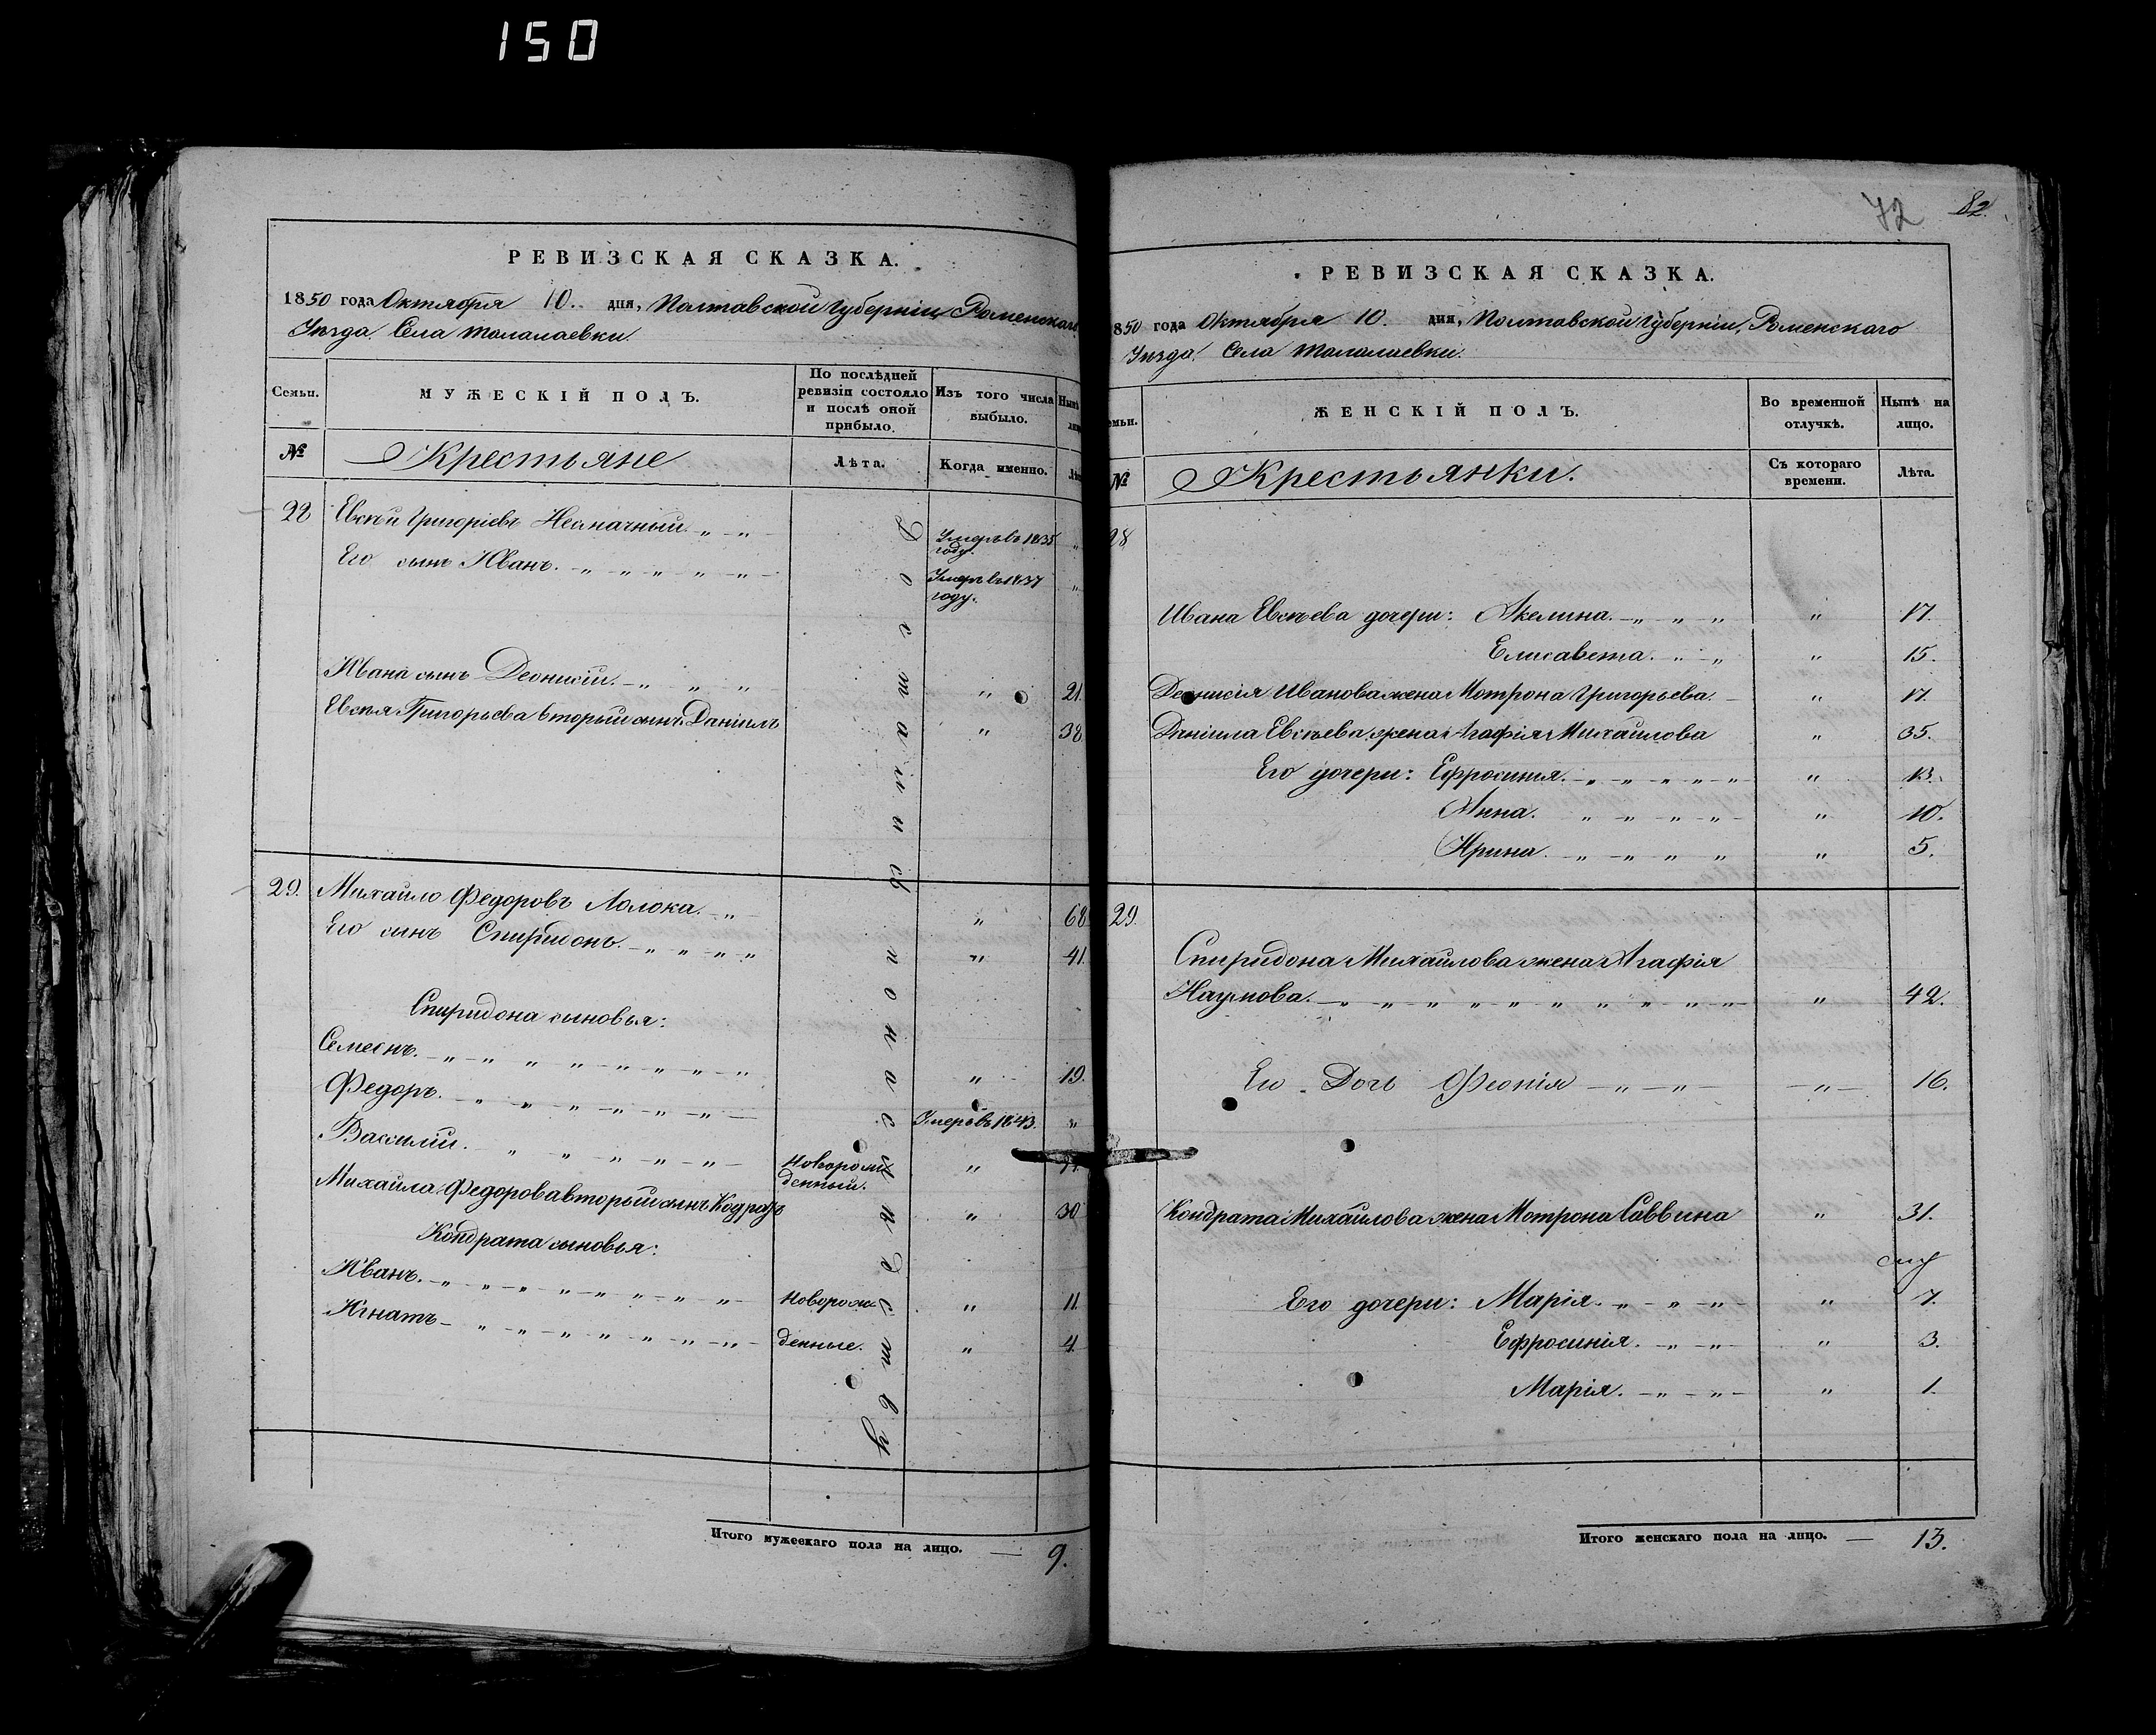 150
РЕВИЗСКАЯ СКАЗКА.
1850 года Октября 10. дня, Полтавской Губерніи Роменскаго
Уѣзда. Села Талалаевки.
Семьи.
МУЖЕСКІЙ ПОЛЪ.
По послѣдней ревизіи состояло и послѣ оной прибыло.
Изъ того числа выбыло.
Нынѣ
№
Крестьяне
Лѣта.
Когда именно.
28 Евсѣй Григоріевъ „ „ Умеръ въ 1835 году. „
Его сынъ Иванъ. „ „ „ „ „ Умеръ въ 1837 году. „
Ивана сынъ Деонисій. „ „ „ „ 21.
Евсѣя Григорьева вторый сынъ Даніилъ „ 38
29. Михайло Федоровъ Лолока. „ „ 68
Его сынъ Спиридонъ. „ „ „ „ „ 41.
Спиридона сыновья:
Семенъ. „ „ „ „ „ „ „ „ „ 19.
Федоръ. „ „ „ „ „ „ Умеръ въ 1843. „
Василій. „ „ „ „ „ новорожденный. „
Михайла Федорова вторый сынъ Кодратъ „ 30
Кондрата сыновья:
Иванъ. „ „ „ „ „ „ „ „ новорож- „ 11.
Игнатъ „ „ „ „ „ „ „ денные. „ 4.
Достались по наслѣдству
Итого мужескаго пола на лицо. — 9.
72 82.
РЕВИЗСКАЯ СКАЗКА.
1850 года Октября 10. дня, Полтавской Губерніи, Роменскаго
Уѣзда. Села Талалаевки.
емьи.
ЖЕНСКІЙ ПОЛЪ.
Во временной отлучкѣ.
Нынѣ на лицо.
№
Крестьянки.
Съ котораго времени.
Лѣта.
28
Ивана Евсѣева дочери: Акелина. „ „ „ „ 17.
Елисавета. „ „ „ 15.
Деонисія Иванова жена Мотрона Григорьева. „ 17.
Даніила Евсѣева жена Агафія Михайлова „ 35.
Его дочери: Ефросинія. „ „ „ „ „ „ 13.
Анна. „ „ „ „ „ 10.
Ирина. „ „ „ „ „ 5.
29.
Спиридона Михайлова жена Агафія
Наумова. „ „ „ „ „ „ „ „ „ „ „ 42.
Его Дочь Феонія „ „ „ 16.
Кондрата Михайлова жена Мотрона Саввина „ 31.
Его дочери: Марія. „ „ „ „ 7.
Ефросинія. „ „ „ 3.
Марія. „ „ „ 1.
Итого женскаго пола на лицо. — 13.